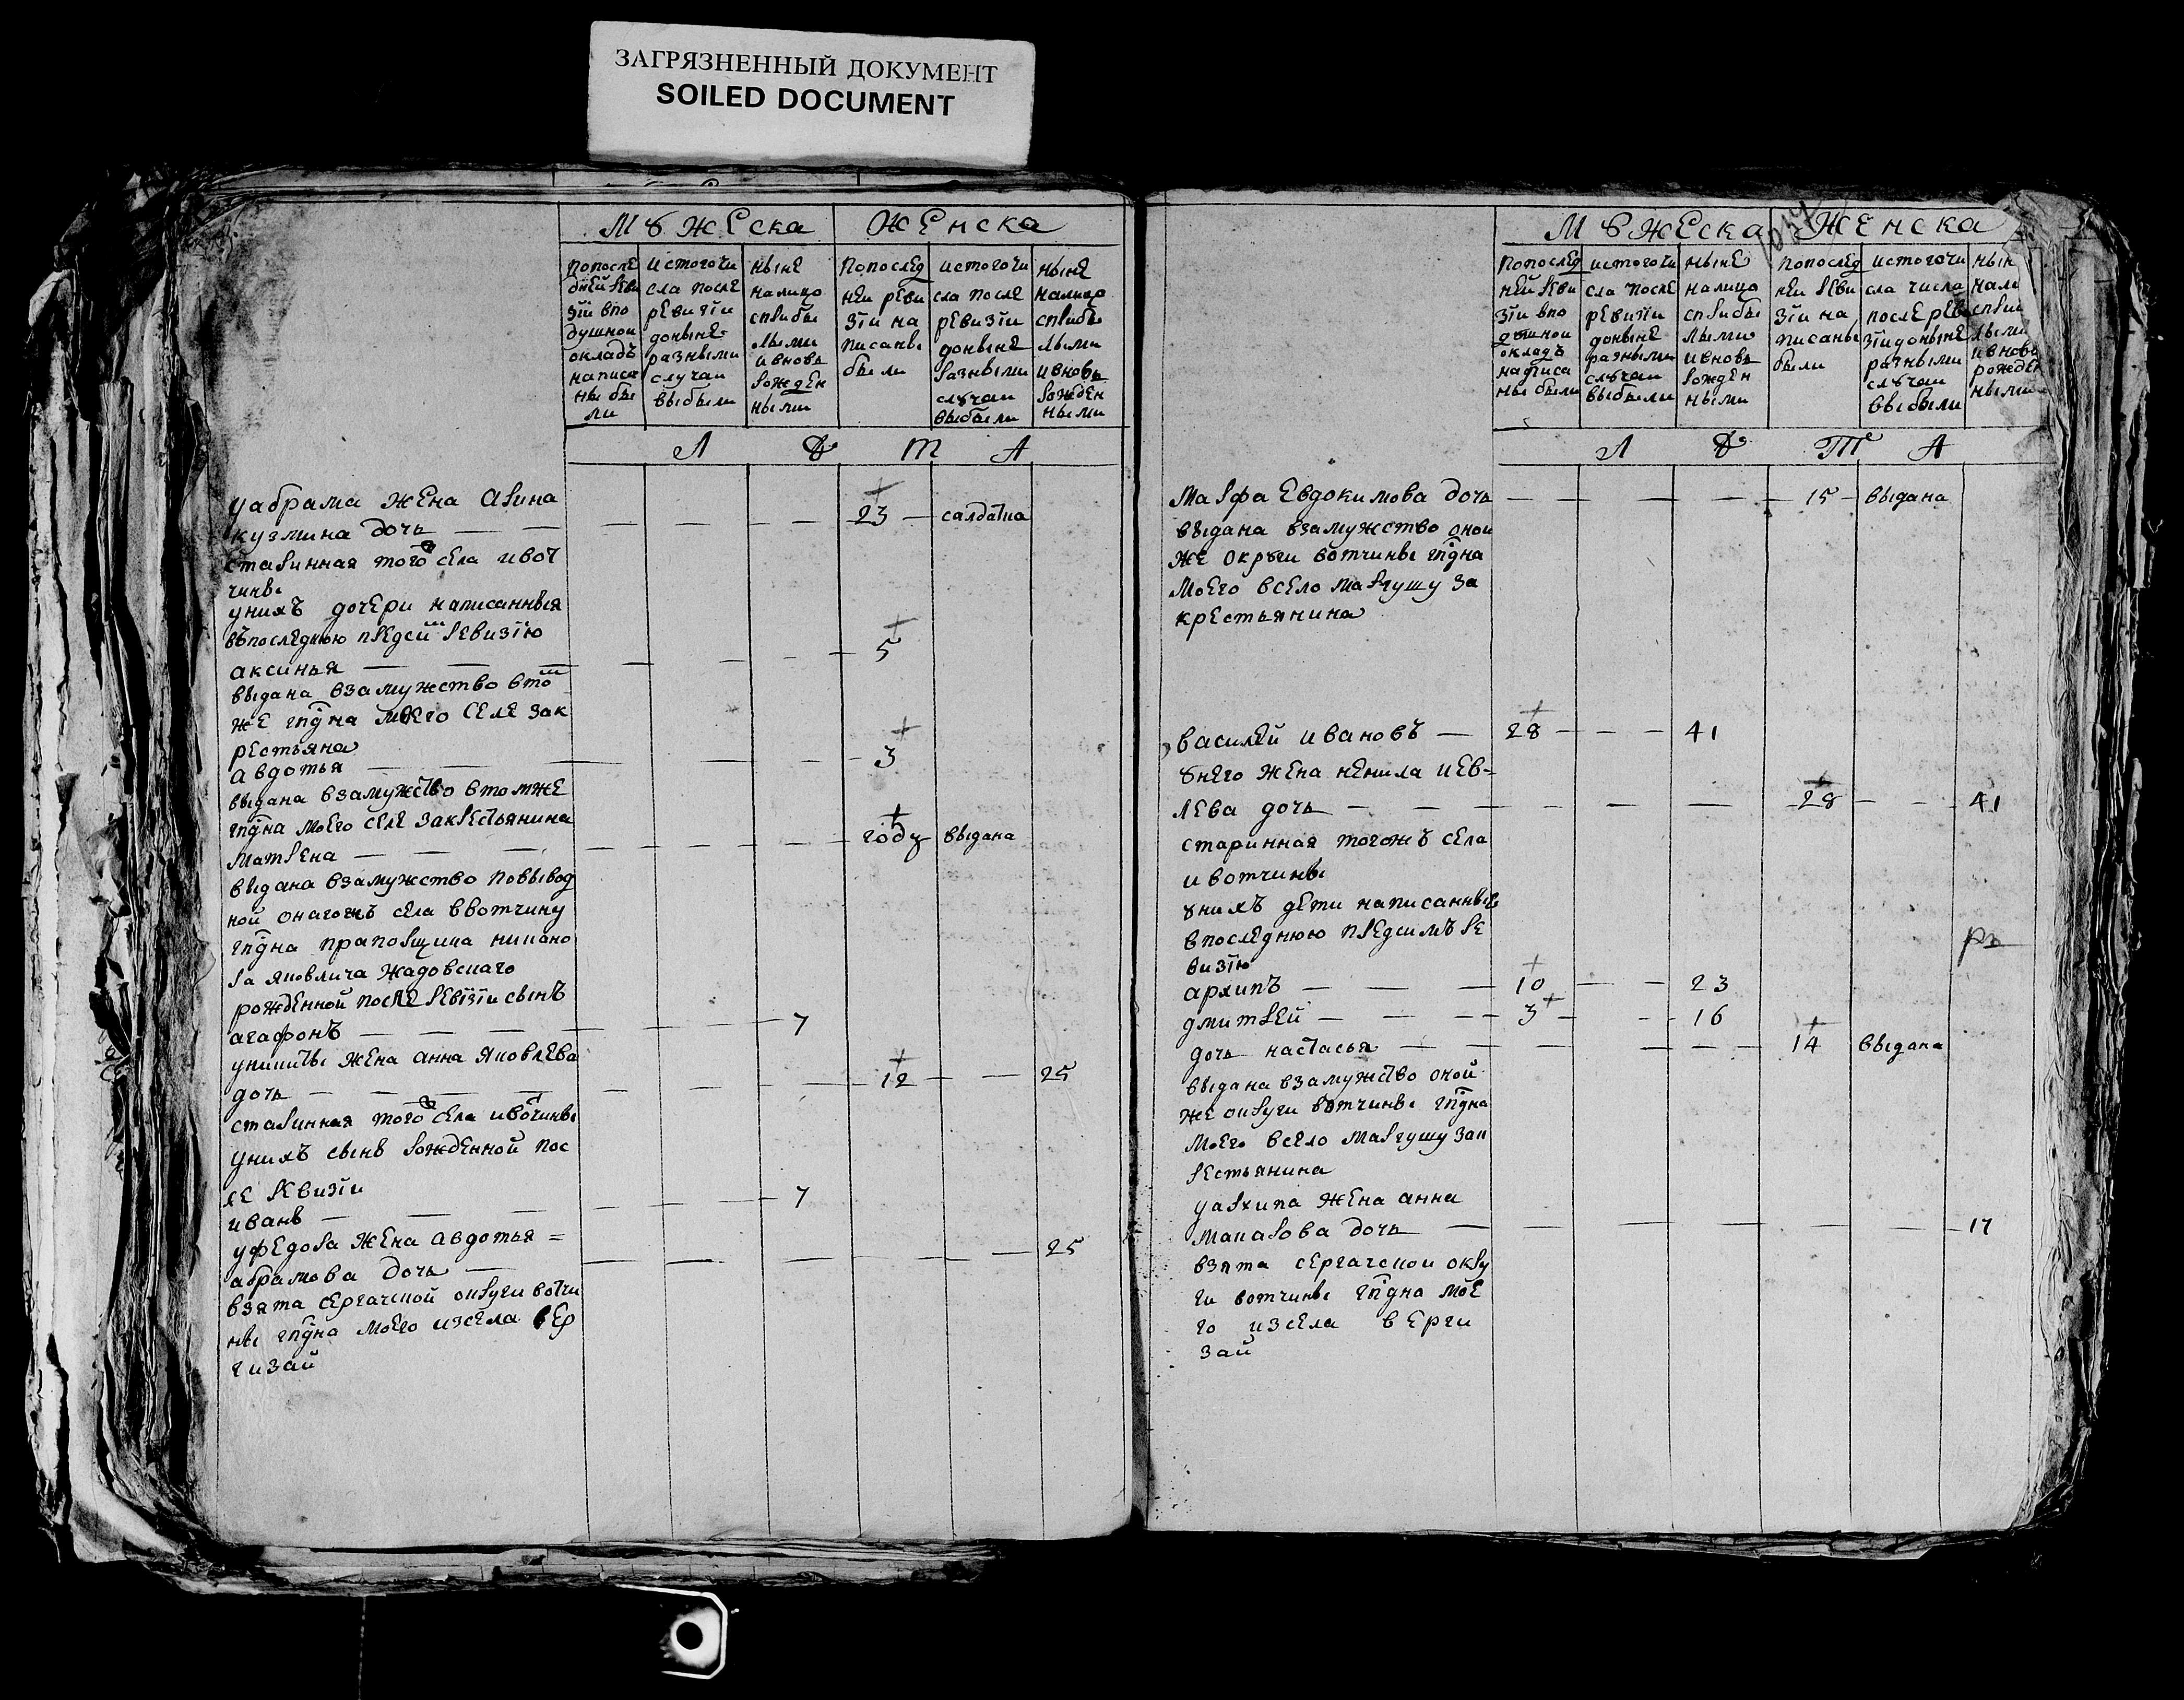 ЗАГРЯЗНЕННЫЙ ДОКУМЕНТ
SOILED DOCUMENT
Мȣжеска Женска
попосле
днеи реви
зiи впо
душной
окладъ
написа
ны бы
ли
истогочи
сла после
ревизiи
доныне
разными
случаи
выбыли
ныне
налицо
сприбы
лыми
ивновь
рожден
ными
попослед
неи реви
зiи на
писаны
были
истогочи
сла после
ревизiи
доныне
разными
слȣчаи
выбыли
ныне
налицо
сприбы
лыми
ивновь
рожден
ными
Л Ѣ Т А
уабрама жена арина
кузмина дочь — — — — — — 23 — салдатка
старинная того ж села ивот
чины
унихъ дочери написанныя
въпоследнюю предсим ревизiю
аксинья — — — — — — 5
выдана взамужство втом
же гпдна моего селе зак
рестьяна
авдотья — — — — — 3
выдана взамужство втомже
гпдна моего селе закрестьянина
матрена — — — — — — году выдана
выдана взамужство повывод
ной онагожъ села ввотчину
гпдна прапорщика никано
ра яковлича жадовскаго
рожденной после ревiзiи сынъ
агафонъ — — — — — — 7
уникиты жена анна яковлева
дочь — — — — — — 12 — — 25
старинная того ж села ивотчины
унихъ сынъ рожденной пос
ле ревизiи
иванъ — — — — — — 7
уфедора жена авдотья =
абрамова дочь — — — — — — — 25
взята сергачской округи вотчи
ны гпдна моего изсела вер
гизай
Мȣжеска Женска
попослед
ней реви
зiи впо
дȣшной
окладъ
написа
ны были
истогочи
сла после
ревизiи
доныне
разными
слȣчаи
выбыли
ныне
налицо
сприбы
лыми
ивновь
рожден
ными
попослед
неи реви
зiи на
писаны
были
истогочи
сла числа
после рев
зiидоныне
разными
слȣчаи
выбыли
нын
нали
сприб
лыми
ивновь
рожден
ными
Л Ѣ Т А
марфа евдокимова дочь — — — — — 15 — выдана
выдана взамужство оной
же окрȣги вотчины гпдна
моего всело маргушу за
крестьянина
василей ивановъ — 28 — — — 41
ȣнего жена ненила иев=
лева дочь — — — — — — — 28 — — — 41
старинная тогожъ села
и вотчины
ȣнихъ дети написанныя
впоследнюю предсимъ ре
визiю
архипъ — — — 10 — — 23
дмитрей — — — — 3 — — 16
дочь настасья — — — — — — 14 выдана
выдана взамужство оной
же округи вотчины гпдна
моего всело маргушу зак
рестьянина
уархипа жена анна
макарова дочь — — — — — — — 17
взята сергачской окру
ги вотчины гпдна мое
го изсела верги
зай